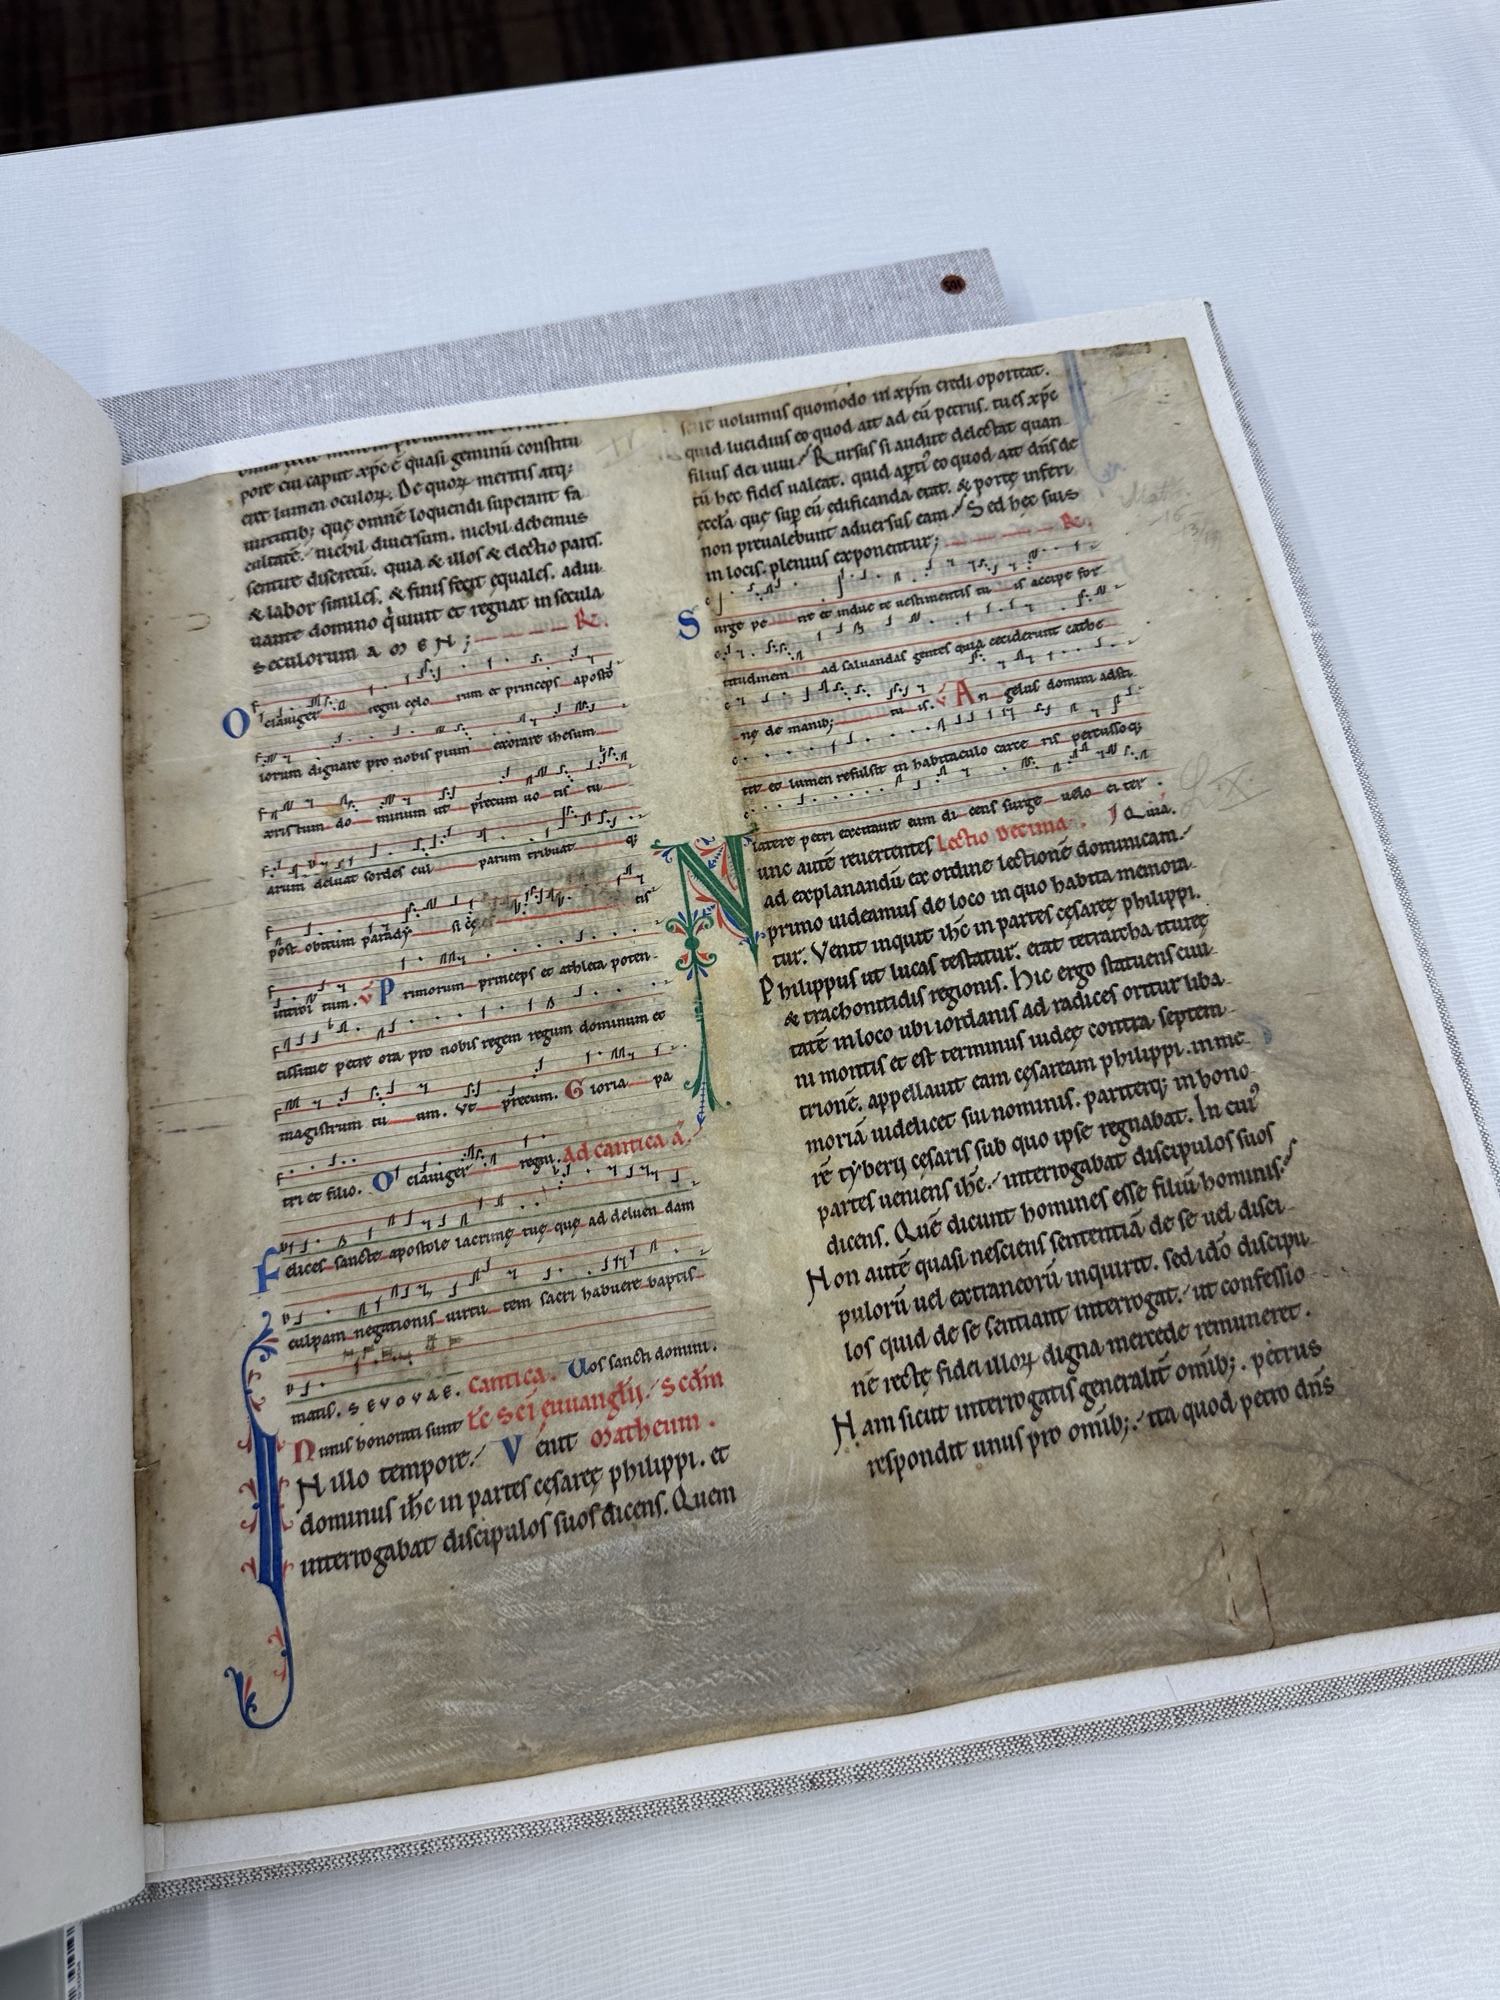 pore cui caput xp̄c ē quasi geminū constitu
erit lumen oculoꝝ. De quoꝝ meritis atq;
uirtutib; quę omnē loquendi superant fa
cultatē. nichil diuersum. nichil debemus
sentire discretū. quia & illos & electio pares.
& labor similes. & finis fecit equales. adiu
uante domino q̇ uiuit et regnat in secula
seculorum a m e n; R.
O clauiger regni celo rum et princeps aposto
lorum dignare pro nobis pium exorare ihesum
xristum do minum ut precum uo tis tu
arum deluat sordes cui parum tribuat q;
post obitum parady si cęles tis
introi tum. V̄ Primorum princeps et athleta poten
tissime petre ora pro nobis regem regum dominum et
magistrum tu um. Vt precum. Gloria pa
tri et filio. O clauiger regni. Ad cantica ā.
Felices sancte apostole lacrimę tuę quę ad deluen dam
culpam negationis uirtu tem sacri habuere baptis
matis. s e v o v a e. Cantica. Vos sancti domini.
Nimis honorati sunt Lc̄ Sc̄i euuanglij. Scdm
IN illo tempore. Venit Matheum.
dominus ih̄c in partes cesareę philippi. et
interrogabat discipulos suos dicens. Quem
uolumus quomodo in xp̄m credi oporteat.
quid lucidius eo quod ait ad eū petrus. tu es xp̄c
filius dei uiui. Rursus si audire delectat quan
tū hec fides ualeat. quid aptī eo quod ait dn̄s de
ęccl̄a quę sup̄ eū edificanda erat. & portę inferi
non preualebunt aduersus eam. Sed hec suis
in locis. plenius exponentur; R.
Surge pe tre et indue te uestimentis tu is accipe for
titudinem ad saluandas gentes quia ceciderunt cathe
nę de manib; tu is. V̄ An gelus domini adsti
tit et lumen refulsit in habitaculo carce ris percussoq;
latere petri excitauit eum di cens surge uelo ci ter.
Nunc autē reuertentes Lectio Decima. Quia.
ad explanandū ex ordine lectionē dominicam.
primo uideamus de loco in quo habita memora
tur. Venit inquit ih̄c in partes cęsareę philippi.
Philippus ut lucas testatur. erat tetrarcha itureę
& trachonitidis regionis. Hic ergo statuens ciui
tatē in loco ubi iordanis ad radices oritur liba
ni montis et est terminus iudeę contra septem
trionē. appellauit eam cęsaream philippi. in me
moriā uidelicet sui nominis. pariterq; in hono
rē tyberij cęsaris sub quo ipse regnabat. In cui᾿
partes ueniens ih̄c. interrogabat discipulos suos
dicens. Quē dicunt homines esse filiū hominis.
Non autē quasi nesciens sententiā de se uel disci
pulorū uel extraneorū inquirit. sed idō discipu
los quid de se sentiant interrogat. ut confessio
nē rectę fidei illoꝝ digna mercede remuneret.
Nam sicut interrogatis generalit̄ omīb;. petrus
respondit unus pro omīb;. ita quod petro dn̄s